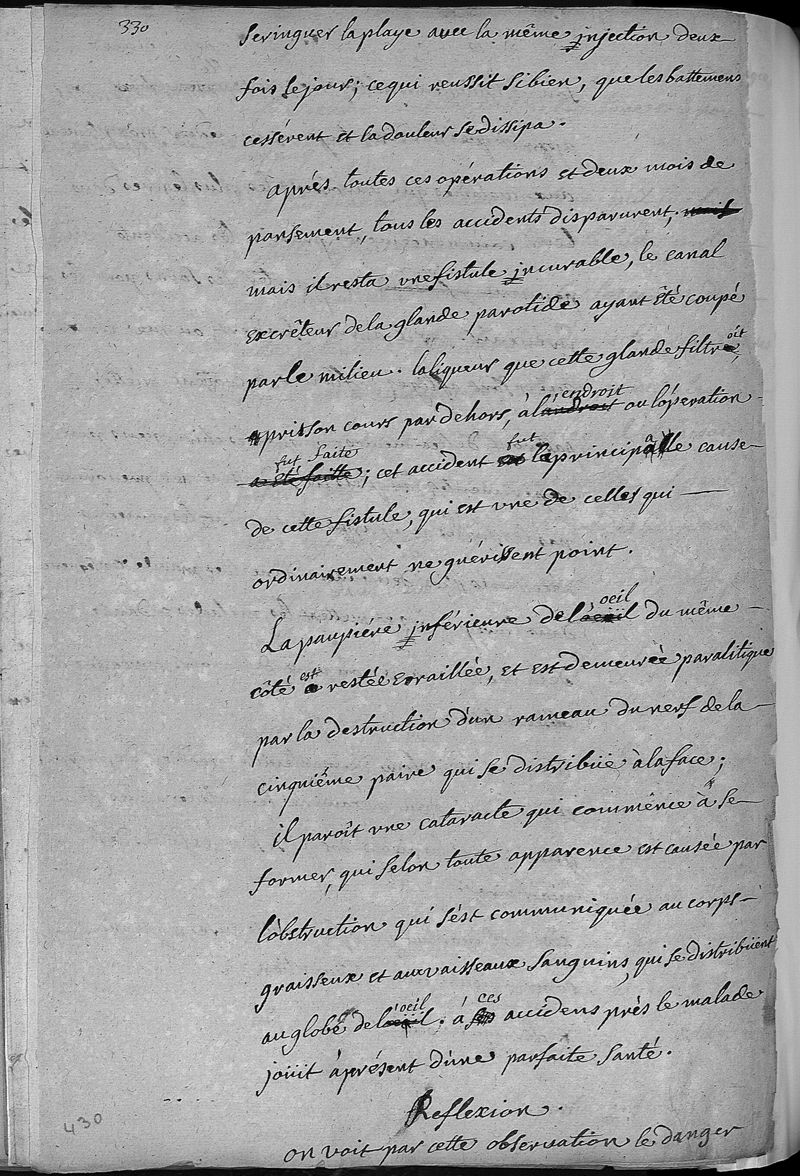 330
seringuer la playe avec la même injection deux
fois le jour; ce qui reussit si bien, que les battemens
cessérent et la douleur se dissipa.
après toutes ces opérations et deux mois de
pansement, tous les accidents disparurent, mais
mais il resta vne fistule incurable, le canal
excrêteur de la glande parotide ayant êté coupé
par le milieu. la liqueur que cette glande filtroit,
prit son cours par dehors, à l'endroit ou l'opération
fut faite; cet accident fut la principalle cause
de cette fistule, qui est vne de celles qui
ordinairement ne guérissent point.
La paupiére inférieure de l'oeil du même
côté est restée eraillée, et est demeurée paralitique
par la destruction d'un rameau du nerf de la
cinquiême paire qui se distribüe à la face;
il paroît vne cataracte qui commence à se
former, qui selon toute apparence est causée par
l'obstruction qui s'est communiquée au corps
graisseux et aux vaisseaux sanguins, qui se distribüent
au globe de l'oeil. à ces accidens près le malade
joüit àprésent d'une parfaite santé.
Reflexion.
on voit par cette observation le danger
430